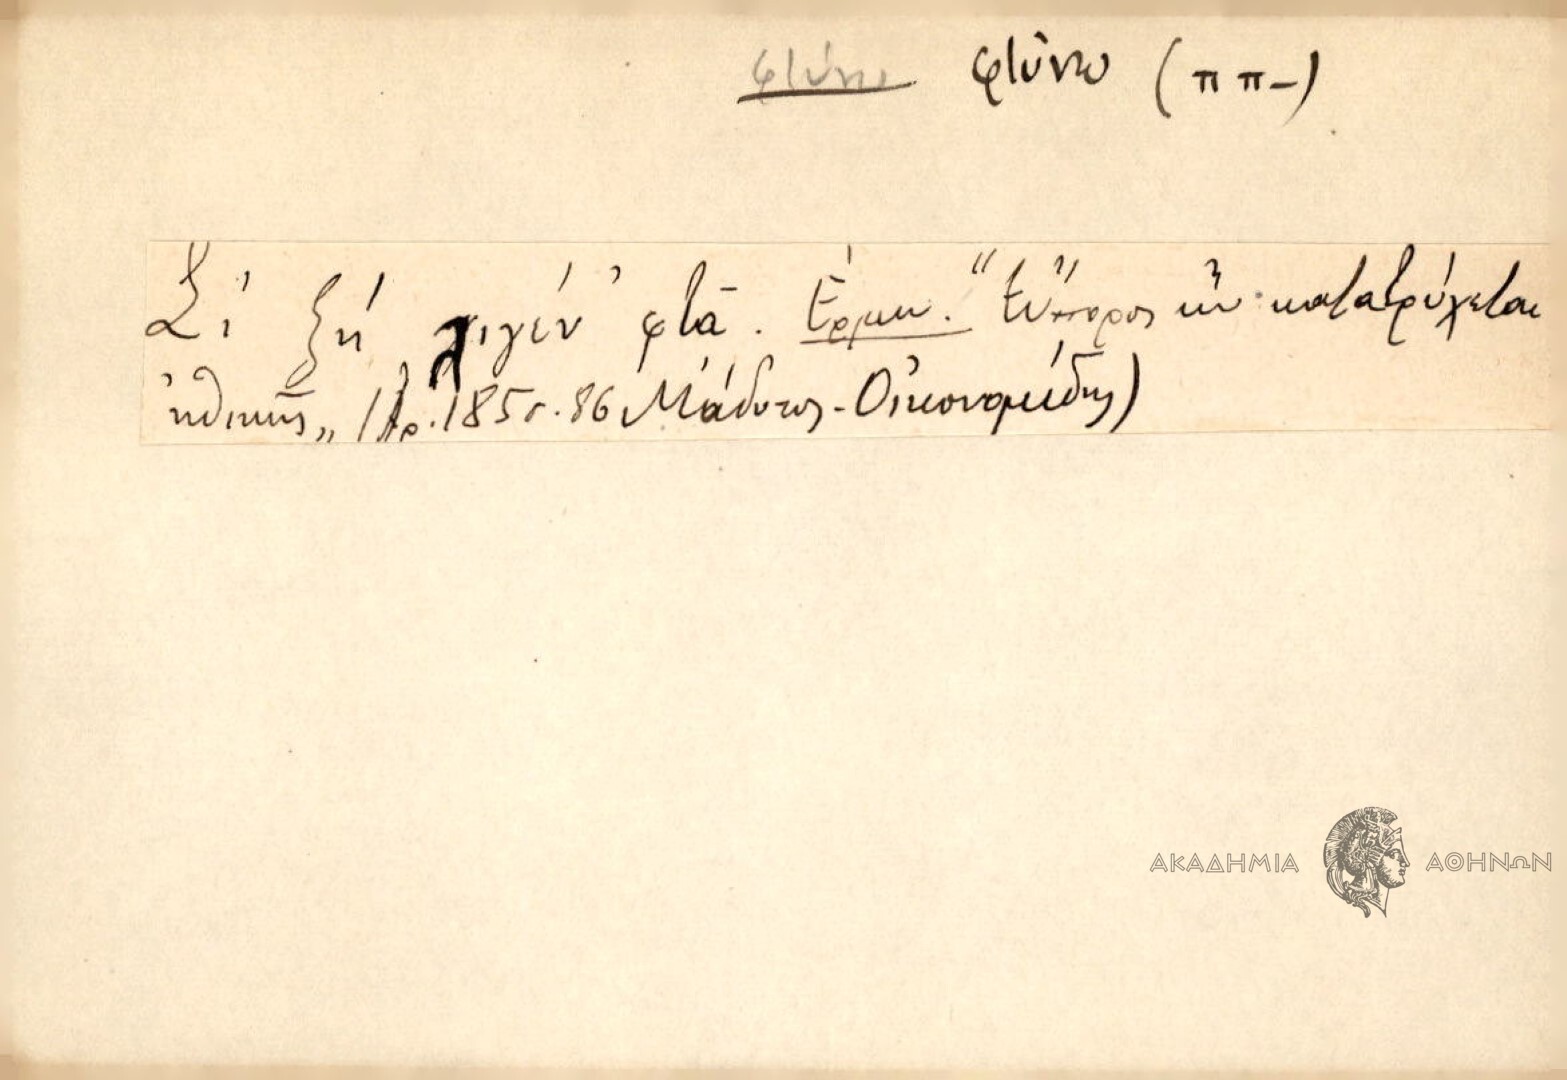 φτύνω φτύνω (ππ-)
Σὶ ξή λιγέν' φτᾶ. Ἑρμην. "Εὔπορος ὢν κατατρύχεται
ἠθικῶς„ (Ἀρ. 185 σ. 86 Μάδυτος - Οἰκονομίδης)
ΑΚΑΔΗΜΙΑ ΑΘΗΝΩΝ